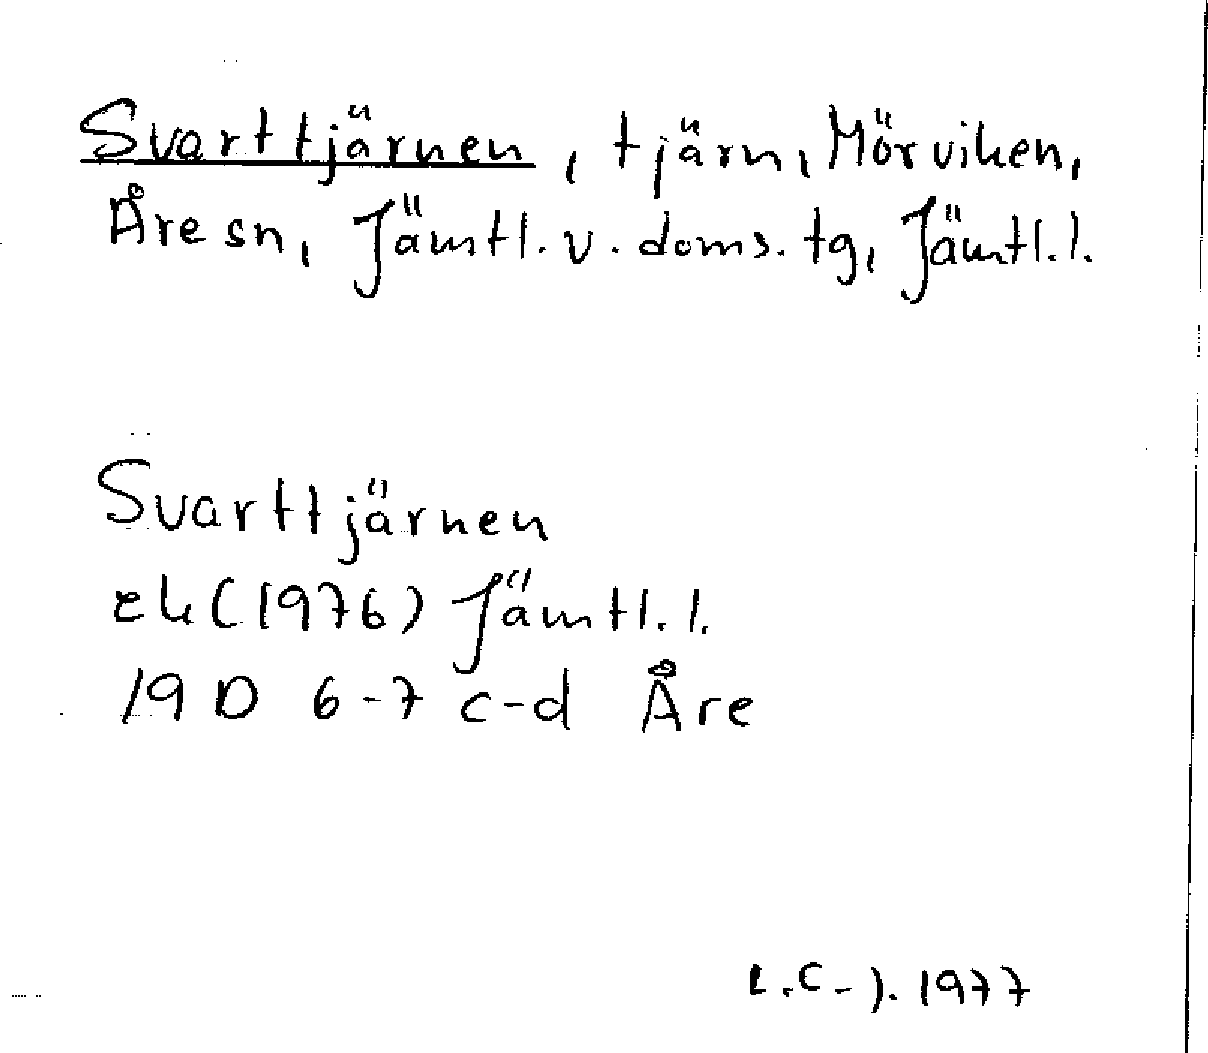 Svarttjärnen, tjärn, Mörviken,
Åre sn, Jämtl. v. doms. tg, Jämtl. l.
Svarttjärnen
ek (1976) Jämtl. l.
19 D 6-7 c-d Åre
1977